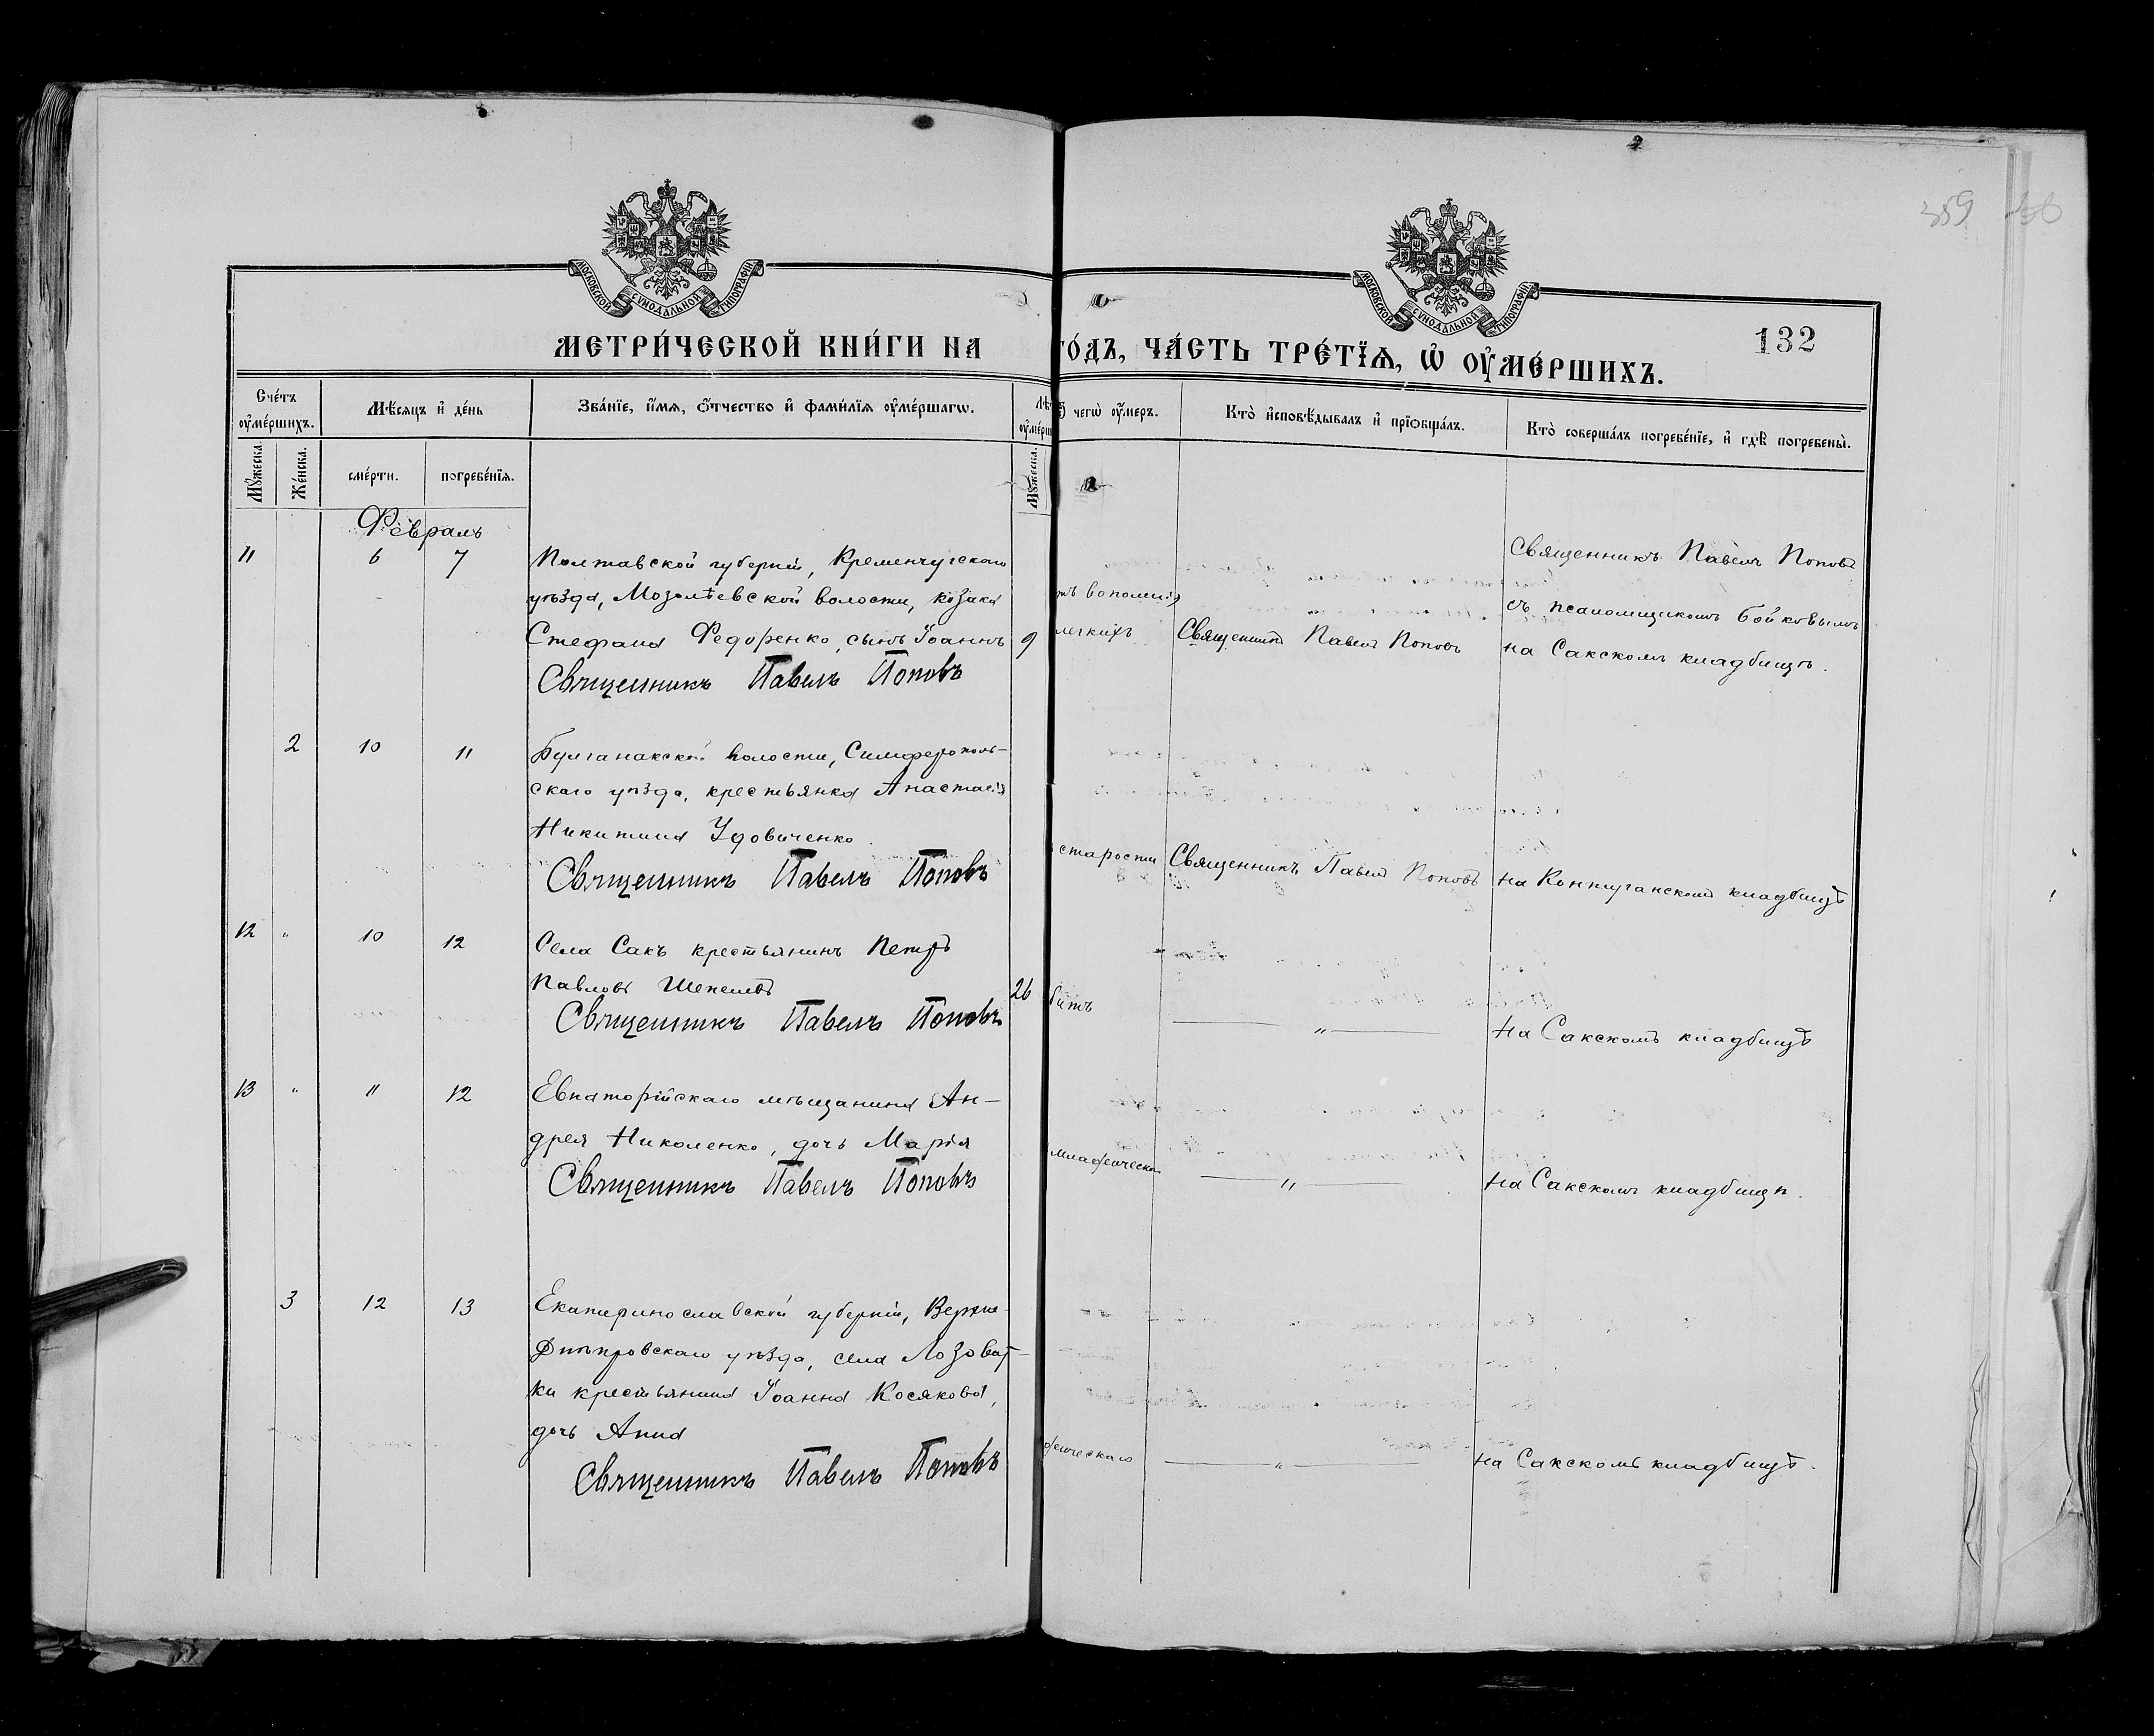 359
МОСКОВСКОЙ СѴНОДАЛЬНОЙ ТИПОГРАФІИ
МОСКОВСКОЙ СѴНОДАЛЬНОЙ ТИПОГРАФІИ
132
МЕТРИ́ЧЕСКОЙ КНИ́ГИ НА ГО́ДЪ, ЧА́СТЬ ТРЕ́ТЇѦ, Ѡ҆ ОУ҆МЕ́РШИХЪ.
Сче́тъ оу҆ме́ршихъ.
Мѣ́сяцъ и҆ де́нь
Зва́нїе, и҆́мя, ѻ҆́тчество и҆ фами́лїя оу҆ме́ршагѡ.
Лѣ
оу҆ме́рш
чегѡ̀ оу҆́меръ.
Кто̀ и҆сповѣ́дывалъ и҆ прїѡбща́лъ.
Кто̀ соверша́лъ погребе́нїе, и҆ гдѣ̀ погребены̀.
Мꙋ́жеска.
Же́нска.
сме́рти.
погребе́нїя.
Мꙋ́жеска.
Февраль
11 6 7 Полтавской губерніи, Кременчугскаго
уѣзда, Мозолѣевской волости, козака
Стефана Федоренко, сынъ Іоаннъ 9
Священникъ Павелъ Поповъ
легкихъ Священникъ Павелъ Поповъ
Священникъ Павелъ Поповъ
съ псаломщикомъ Бойковымъ
на Сакскомъ кладбищѣ.
2 10 11 Булганакской волости, Симферополь-
скаго уѣзда, крестьянка Анастасія
Никитина Удовиченко.
Священникъ Павелъ Поповъ
старости Священникъ Павелъ Поповъ на Контуганскомъ кладбищѣ
12 " 10 12 Села Сакъ крестьянинъ Петръ
Павловъ Шепелевъ 26
Священникъ Павелъ Поповъ
" на Сакскомъ кладбищѣ
13 " 11 12 Евпаторійскаго мѣщанина Ан-
дрея Николенко, дочь Марія
Священникъ Павелъ Поповъ
младенческ " на Сакскомъ кладбищѣ.
3 12 13 Екатеринославской губерніи, Верхне
Днѣпровскаго уѣзда, села Лозоват-
ки крестьянина Іоанна Косякова,
дочь Анна
Священникъ Павелъ Поповъ
денческаго " на Сакскомъ кладбищѣ.